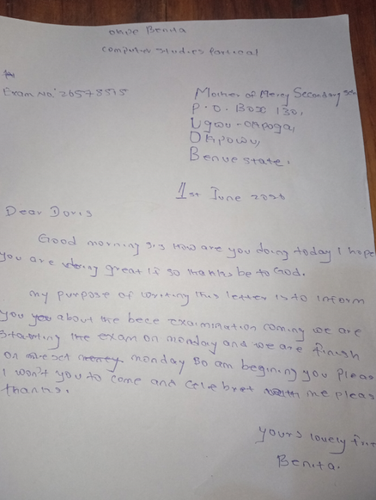 Benita
Computer Studies
Exam No: 20573515
Mother of Mercy Secondary
P.O. Box 130,
Ugwu-okpoga,
Okpowu,
Benue state.
1st June
Dear Doris
Good morning sis How are you doing today I hope
you are doing great if so thanks be to God.
my purpose of writing this letter is to inform
you about the bece examination coming we are
starting the exam on monday and we are finish
on next monday so am begining you pleas
I won't you to come and celebret me pleas
thanks.
yours lovely
Benita.